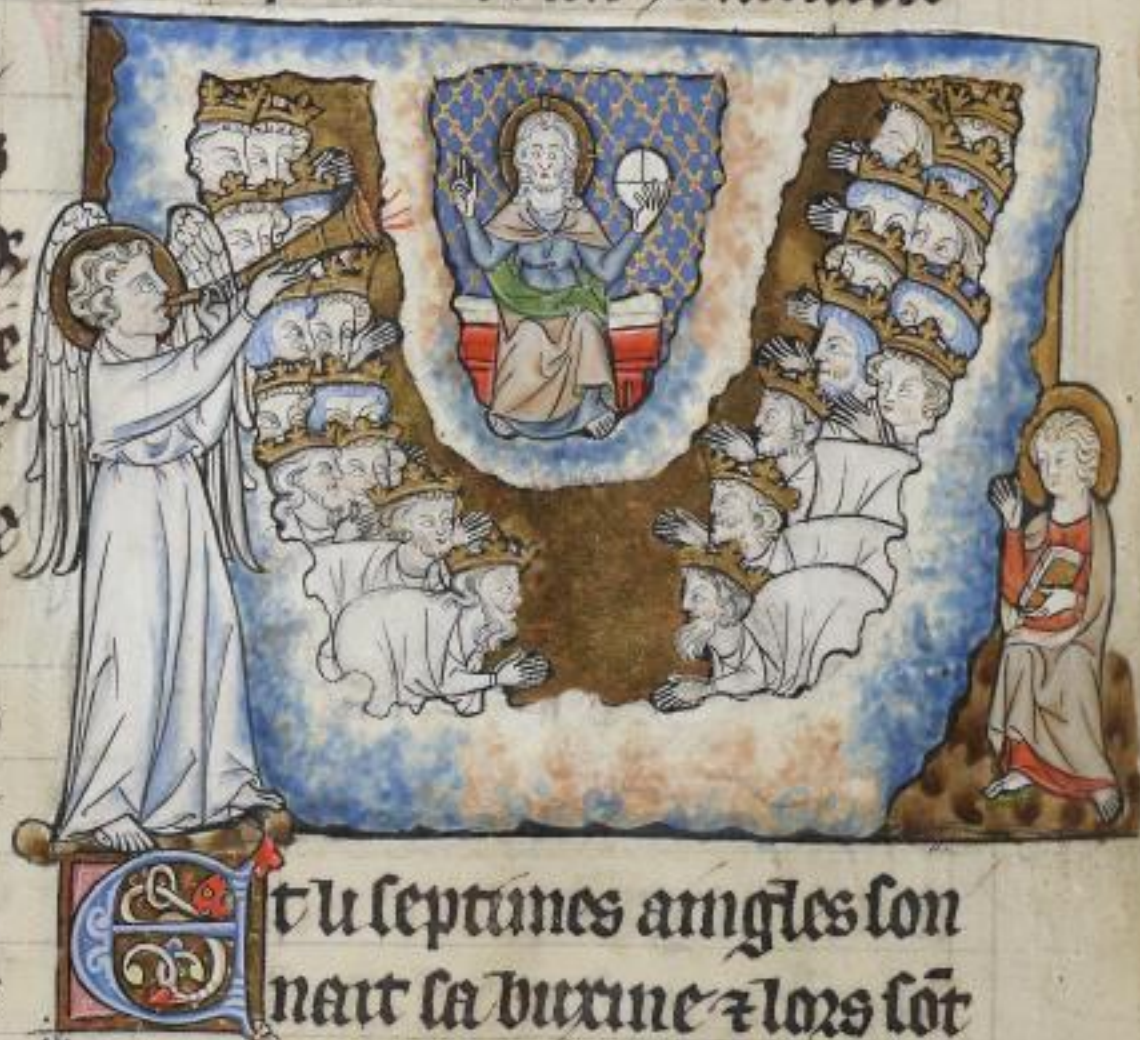 Et li septimes aingles son
nait sa buxine ⁊ lors sōt